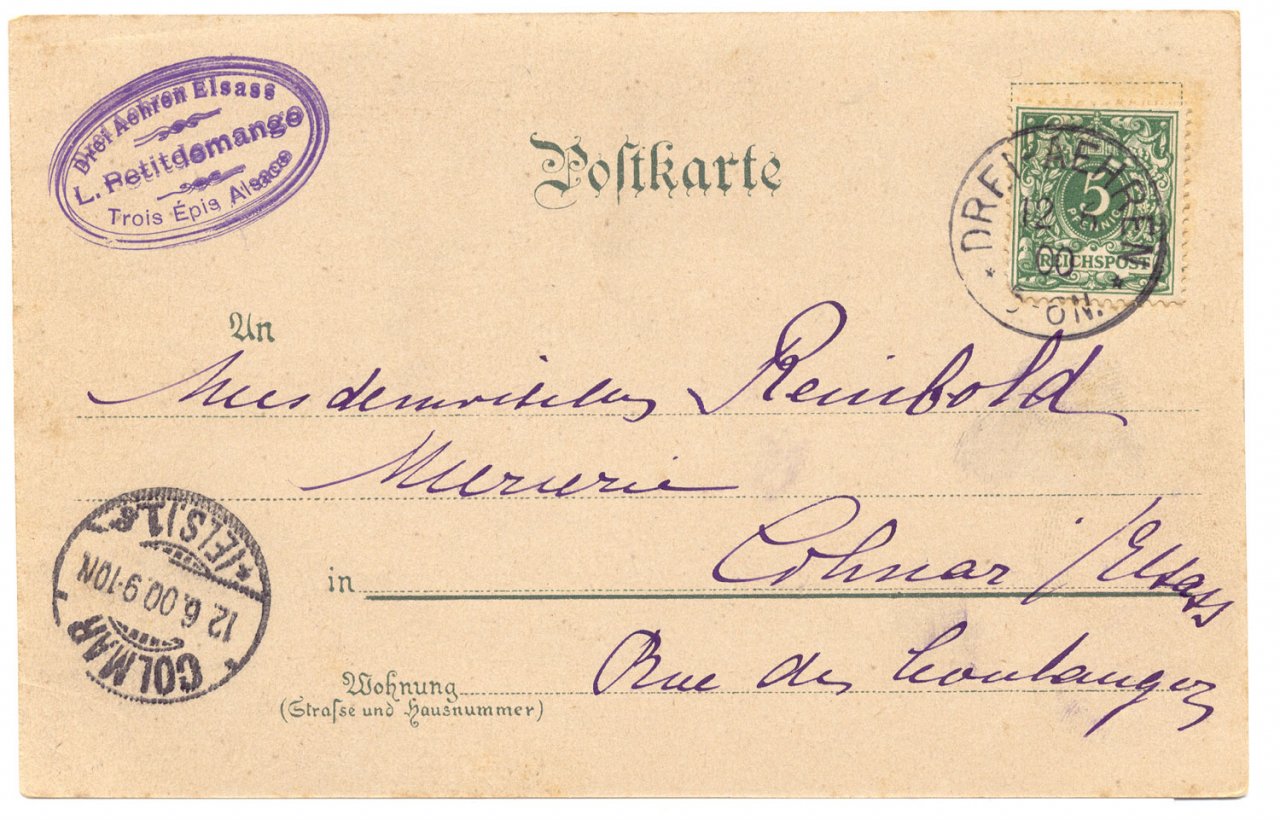 Drei Aehren Elsass
L. Petitdemange
Trois Épis Alsace
Postkarte
DREI-AEHREN
12
00
-6N.
5
PFENNIG
REICHSPOST
An
Mesdemoiselles Reinbold
Mercerie
in Colmar / Elsass
Wohnung Rue des Boulangers
(Strasse und Hausnummer)
COLMAR
12.6.00.9-10N
(ELS.) 1.